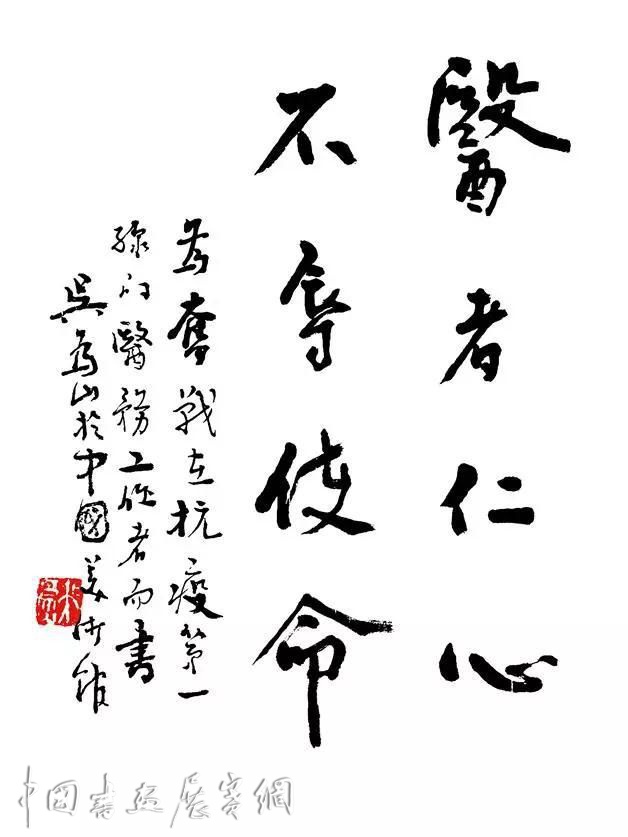 醫者仁心
不辱使命
為奮戰在抗疫第一
線的醫務工作者而書
吳為山於中國美術館
中國書畫展賽網